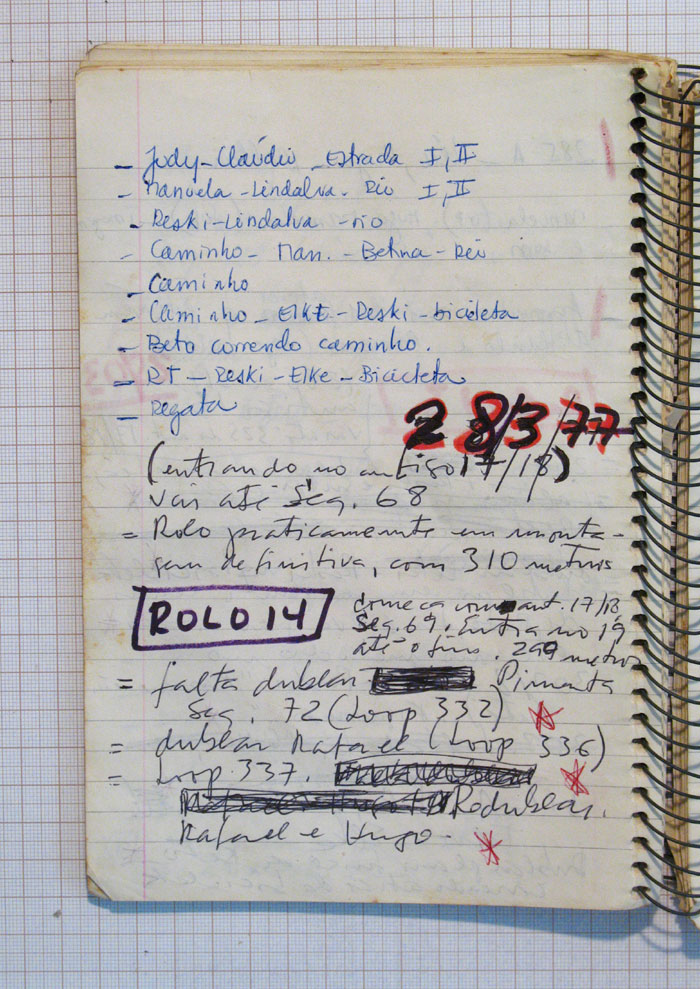 - Judy-Claúdio - Estrada I, II
- Manuela - Lindalva. Rio I, II
- Reski-Lindalva - rio
- Caminho - Man. - Betina - Rio
- Caminho
- Caminho - ElKE - Reski - bicicleta
- Beto correndo caminho.
- RT - Reski - Elke - Bicicleta
- regata
28/3/77
(entrando no antigo 17/18)
vai até Seg. 68
= Rolo praticamente em monta-
gem definitiva, com 310 metros
ROLO 14
começa com ant. 17/18
Seg. 69. Entra no 19
até o fim. 299 metros
= falta dublar Pimenta
Seg. 72 (Loop 332)
= dublar Rafael (Loop 336)
= Loop 337.
Redublar.
Rafael e Hugo.